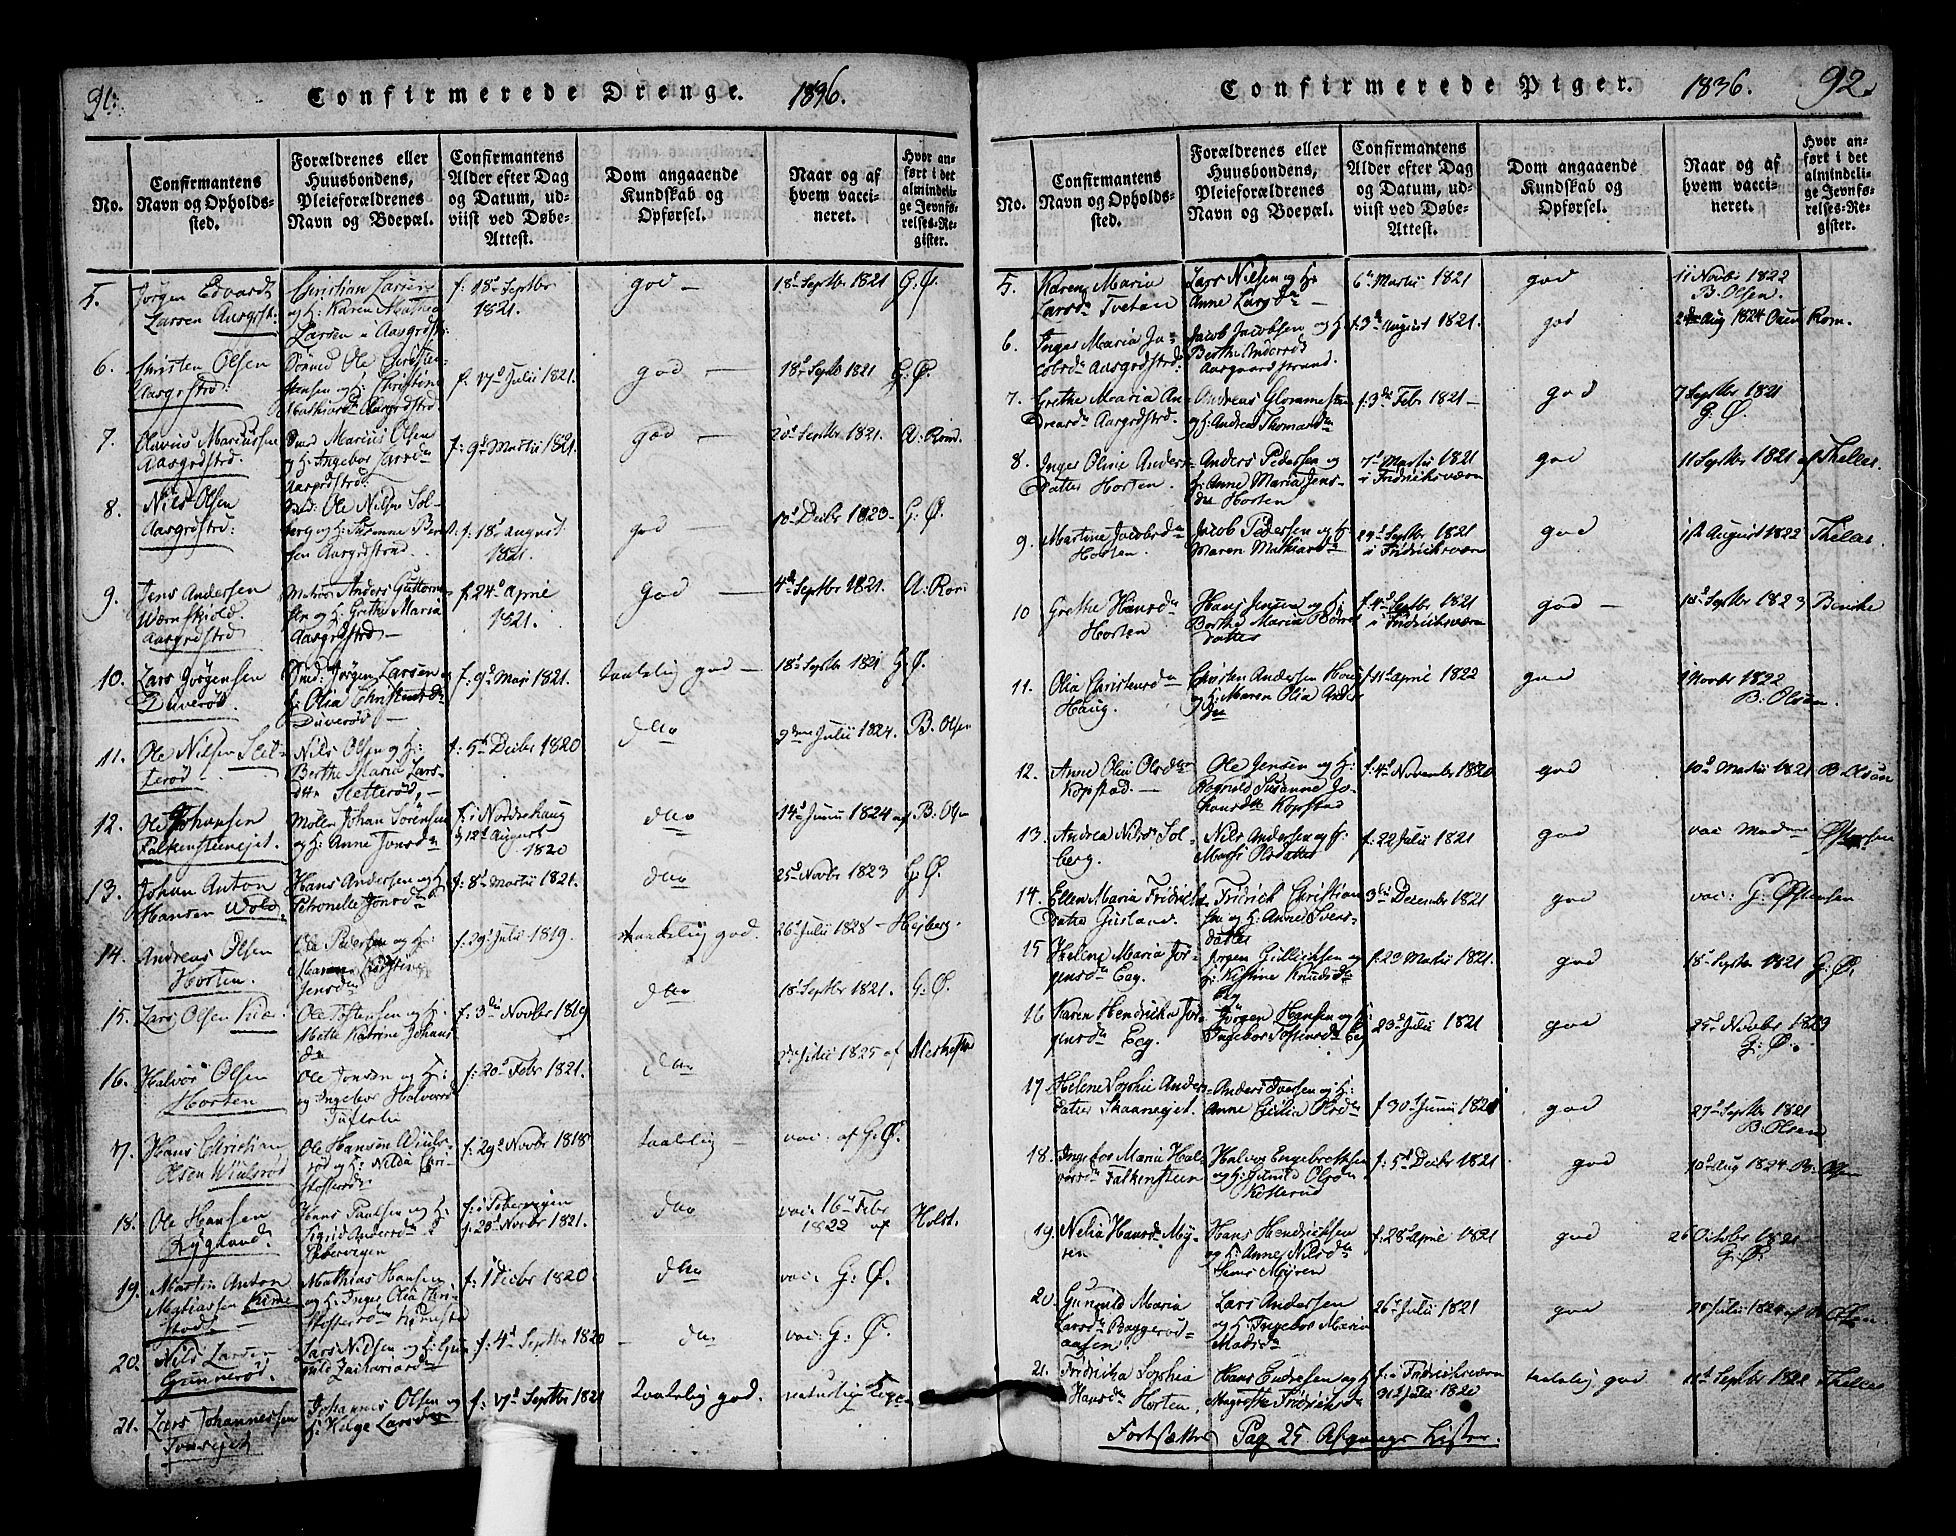 91.
Confirmerede Drenge. 1836.
No.
Confirmantens
Navn og Opholds-
sted.
Forældrenes eller
Huusbondens,
Pleieforældrenes
Navn og Boepæl.
Confirmantens
Alder efter Dag
og Datum, ud-
viist ved Døbe-
Attest.
Dom angaaende
Kundskab og
Opførsel.
Naar og af
hvem vacci-
neret.
Hvor an-
ført i det
almindeli-
ge Jevnfø-
relses-Re-
gister.
5. Jørgen Edvard
Larsen Aasgrst.
Christian Larsen
og H: Karen Mathea
Larsen i Aasgrdst:
f: 18d Septbr
1821.
god –
18d Septbr 1821 G: Ø.
6. Christen Olsen
Aasgrdstrd.
Ole Christen-
sen og H: Christine
Aasgrdstrd
f. 17d Julii 1821.
god –
18d Septb 1821 G: Ø.
7. Olavus Mariussen
Aasgrdstrd.
Smd Marius Olsen
og H: Ingebor Larsdn
Aasgrdstrd.
f: 9d Martii 1821.
god –
20d Septbr 1821. A: Rom.
8. Nils Olsen
Aasgrdstrd:
Ole Nilsen Sol-
berg og H: Susanne Bernt-
sen Aasgrdstrand.
f: 18d August
1821.
god
10d Decbr 1823. G: Ø.
9. Jens Andersen
Wærnskiold.
Aasgrdstrd
Matros Anders Guttorm-
sen og H: Grethe Maria
Aasgrdstrd –
f. 24d April
1821.
god –
4d Septbr 1821. A: Rom
10. Lars Jørgensen
Duverød.
Smd: Jørgen Larsen og
H: Olia Christensdn
Duverød –
f: 9d Mai 1821.
taalelig god –
18d Septbr 1821 G: Ø.
11. Ole Nilsen Slet-
terød –
Nils Olsen og H:
Berthe Maria Lars-
dttr Sletterød,
f: 5d Decbr 1820
do
9de Julii 1824. B. Olsen
12. Ole Johansen
Falkensteneiet.
Møller Johan Sörensen
og H: Anne Jonsdn
f: i Nordrehaug
d 12d August
1820
do
14d Junii 1824 af B: Olsen
13. Johan Anton
Hansen Wold.
Hans Andersen og H:
Petronelle Jonsdn
f: 8d Martii 1821.
do
25d Novbr 1823 G: Ø.
14. Andreas Olsen
Horten.
Ole Pedersen og H:
Maren Kirstine
Jensdn
f: 29d Julii 1819.
taalelig god.
26d Julii 1828 – Heyberg.
15. Lars Olsen
Ole Toftensen og H:
Mette Katrine Johans
dn
f: 3die Novbr 1819
do
18d Septbr 1821. G: Ø.
16. Halvor Olsen
Horten
Ole Jonsen og H:
og Ingebor Halvorsd
f: 20d Febr 1821.
do
Julii 1825 af
17. Hans Christian
Olsen Wiulsrød
Ole Hansen Wiuls-
rød og H: Nilia Chri-
stofersdn
f: 29d Novbr 1818
taalelig –
vac: af G: Ø.
18. Ole Hansen
Rygland.
Hans Paulsen og H:
Sigrid Andersdn
Pebervegen
f: i Pebervegen
f. 20d Novbr 1821.
do
vac: 16d Febr
1822 af Holst.
19. Martin Anton
Mathiassen Kirne
stad. –
Mathias Hansen
og H: Inger Olia Chri-
stofersdn Kjrnestd
f: 1 Decbr 1820.
do
vac: G: Ø.
20. Nils Larsen
Gunnerød.
Lars Nilsen og H: Gun
nild Zachariasdn
f: 4d Septbr 1820
do
vac: G: Ø.
21. Lars Johannessen
Johannes Olsen og
H: Helge Larsdn
f: 17d Septbr 1821
taalelig god.
Confirmerede Piger. 1836. 92.
No.
Confirmantens
Navn og Opholds-
sted.
Forældrenes eller
Huusbondens,
Pleieforældrenes
Navn og Boepæl.
Confirmantens
Alder efter Dag
og Datum, ud-
viist ved Døbe-
Attest.
Dom angaaende
Kundskab og
Opførsel.
Naar og af
hvem vacci-
neret.
Hvor an-
ført i det
almindeli-
ge Jevnfø-
relses-Re-
gister.
5. Karen Maria
Larsdn Tvetan
Lars Nilsen og H:
Anne Larsdn –
6d Martii 1821
god
11 Novbr 1822
B. Olsen.
6. Inger Maria Ja-
cobsdn Aasgrdstrd:
Jacob Jacobsen og H:
Berthe Andersd
Aasgaardstrand.
f. 3d August 1821.
god
Aug 1824 Rom.
7. Grethe Maria An-
dreasdn Aasgrdstrd.
Andreas Glommesten
og H: Andrea Thomasdn
f. 3d Febr 1821 –
god
7 Septbr 1821
G: Ø.
8. Inger Oline Anders-
Datter Horten.
Anders Pedersen og
H: Anne Maria Jens-
dn Horten
7d Martii 1821
i Fridriksværn
god
11 Septbr 1821 af Thelles.
9. Martine Jacobsdn
Horten.
Jacob Pedersen og H:
Maren Mathiasdn
29d Septbr 1821
i Fridrichsværn
god
August 1822 Thelles.
10 Grethe Hansdn
Horten
Hans Jensen og H:
Berthe Maria
datter
f. 4d Septbr 1821
i Fridrichsværn
god –
18d Septbr 1823
11. Olia Christensdn
Haug.
Christen Andersen Haug
og H: Maren Olia Anders
dn
f. 11d April 1822
god
Novbr 1822
B: Olsen.
12. Anne Olia Olsdn
Kopstad. –
Ole Jensen og H:
Ragnild Susanne Jo-
hansdn Kopstad
f. 4d November 1820
god
10d Martii 1821 B Olsen
13. Andrea Nilsdn Sol-
berg.
Nils Andersen og H:
Marthe Olsdatter
f: 22 Julii 1821
god
vac Madme Øftensen
14. Ellen Maria Fridrich-
Datter Gusland.
Fridrich Christian-
sen og H: Anne Ivers-
datter
3die December 1821
god
vac: G: Øftensen
15 Helene Maria Jør-
gensdn Eeg.
Jørgen Gullichsen og
H: Kistine Knudsdn
Eeg
f. 23 Martii 1821.
god
18d Septbr 1821 G: Ø.
16 Karen Hendricka Jør-
gensdn Eeg.
Jørgen Hansen og H:
Ingebor Toftensdn Eeg
23d Julii 1821
god
25d Novbr 1823
G: Ø.
17 Helene Sophie Anders-
datter Skaaneiet.
Anders Iversen og H:
Anne Cicilia Olsdn
f 30d Junii 1821
god
27d Septbr 1821
B. Olsen
18. Ingebor Maria Hal-
vorsdn Falkensteen
Halvor Engebretsen
og H: Gunild Olsdn
f: 5d Decbr 1821
god
10d Aug 1824 B. Olsen
19. Nelia Hansdn My-
ren
Hans Hendrichsen
og H: Anne Nilsdn
Myren
f. 28d April 1821
god
26 October 1821
G: Ø.
20. Gunnild Maria
Larsdn Baggerød-
aasen.
Lars Andersen
og H: Ingebor Maria
Madsdn
26d Julii 1821
god
Julii 1824 af B. Olsen
21. Fridricka Sophia
Hansdn Horten.
Hans Endresen og H:
Magrethe Fridrichsdn
f. i Fridrichsværn
31d Julii 1820
taalelig god
11d Septbr 1821 Thelles
Fortsættes Pag 25 Afgangs Listen.